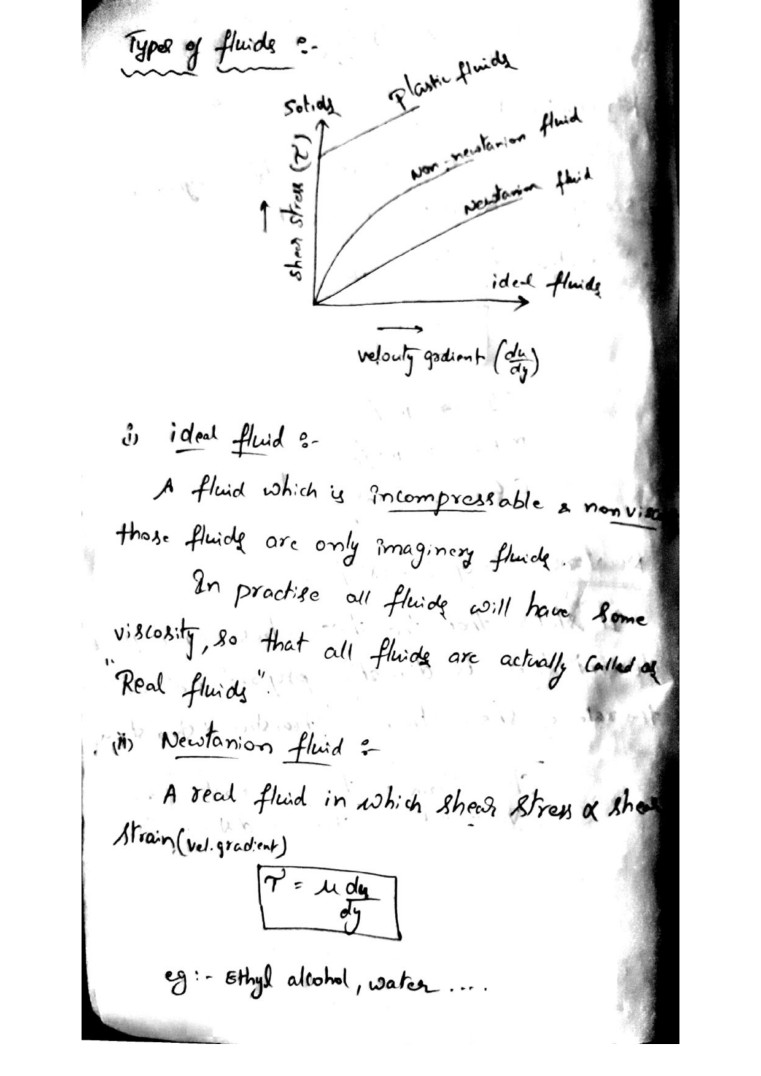 Types of fluids :-
Solids
Plastic fluids
Non-newtanion fluid
Newtanion fluid
shear stress (τ)
ideal fluids
velocity gradient (du/dy)
i) ideal fluid :-
A fluid which is incompressable & non
those fluids are only imaginery fluids.
In practise all fluids will have some
viscosity, so that all fluids are actually called as
"Real fluids".
(ii) Newtanion fluid :-
A real fluid in which shear stress α
strain (vel. gradient)
τ = μ du/dy
eg :- Ethyl alcohol, water ....